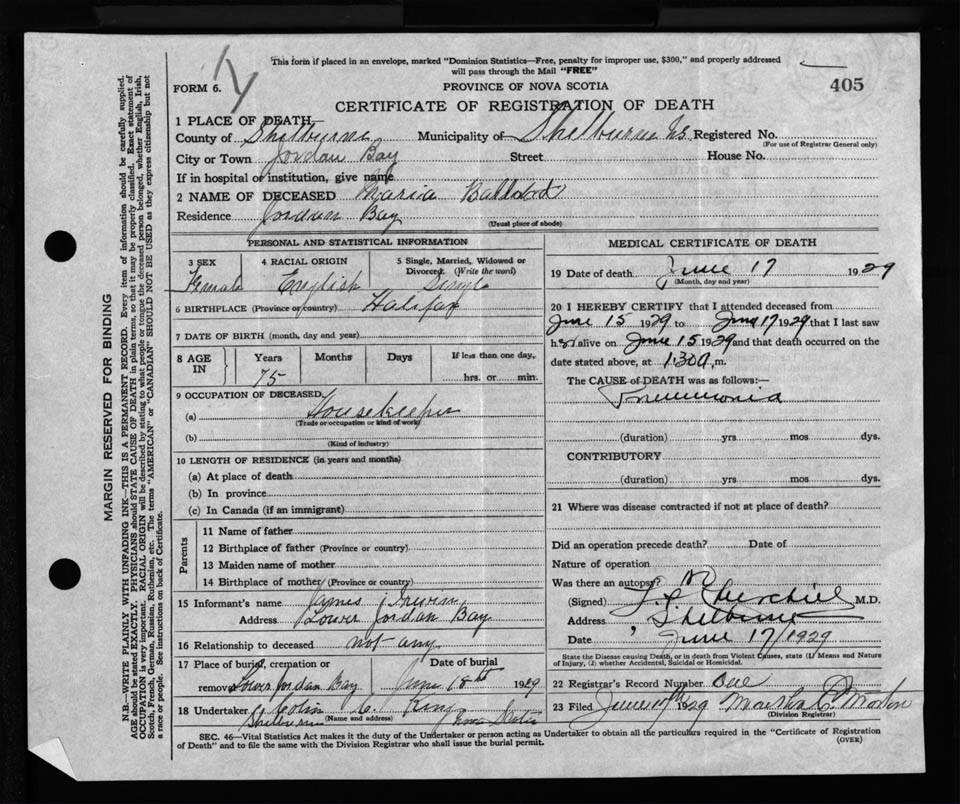 This form if placed in an envelope, marked "Dominion Statistics—Free, penalty for improper use, $300," and properly addressed
will pass through the Mail "FREE"
FORM 6.
PROVINCE OF NOVA SCOTIA
405
CERTIFICATE OF REGISTRATION OF DEATH
1 PLACE OF DEATH—
County of Shelburne Municipality of Shelburne NS. Registered No.
(For use of Registrar General only)
City or Town Jordan Bay Street House No.
If in hospital or institution, give name
2 NAME OF DECEASED Maria
Residence Jordan Bay
(Usual place of abode)
PERSONAL AND STATISTICAL INFORMATION
3 SEX 4 RACIAL ORIGIN 5 Single, Married, Widowed or
Divorced. (Write the word)
Female English Single
6 BIRTHPLACE (Province or country) Halifax
7 DATE OF BIRTH (month, day and year)
8 AGE IN Years Months Days If less than one day,
75 hrs. or min.
9 OCCUPATION OF DECEASED,
(a) Housekeeper
(Trade or occupation or kind of work)
(b)
(Kind of industry)
10 LENGTH OF RESIDENCE (in years and months)
(a) At place of death
(b) In province
(c) In Canada (if an immigrant)
Parents
11 Name of father
12 Birthplace of father (Province or country)
13 Maiden name of mother
14 Birthplace of mother (Province or country)
15 Informant's name James Irwin
Address Lower Jordan Bay
16 Relationship to deceased not any
17 Place of burial, cremation or Date of burial
removal Lower Jordan Bay June 18th 1929
18 Undertaker Colin C. King
(Name and address)
Shelburne Nova Scotia
MEDICAL CERTIFICATE OF DEATH
19 Date of death June 17 1929
(Month, day and year)
20 I HEREBY CERTIFY that I attended deceased from
June 15 1929 to June 17 1929 that I last saw
her alive on June 15 1929 and that death occurred on the
date stated above, at 1.30 a. m.
The CAUSE OF DEATH was as follows:—
Pneumonia
(duration) yrs mos dys.
CONTRIBUTORY
(duration) yrs mos dys.
21 Where was disease contracted if not at place of death?
Did an operation precede death? Date of
Nature of operation
Was there an autopsy? no
(Signed) Churchill M.D.
Address Shelburne
Date June 17/1929
State the Disease causing Death, or in death from Violent Causes, state (1) Means and Nature
of Injury, (2) whether Accidental, Suicidal or Homicidal.
22 Registrar's Record Number One
23 Filed June 19th 1929 Martha C. Morton
(Division Registrar)
SEC. 46—Vital Statistics Act makes it the duty of the Undertaker or person acting as Undertaker to obtain all the particulars required in the "Certificate of Registration
of Death" and to file the same with the Division Registrar who shall issue the burial permit.
(OVER)
MARGIN RESERVED FOR BINDING
N.B.—WRITE PLAINLY WITH UNFADING INK—THIS IS A PERMANENT RECORD. Every item of information should be carefully supplied.
AGE should be stated EXACTLY. PHYSICIANS should STATE CAUSE OF DEATH in plain terms, so that it may be properly classified. Exact statement of
OCCUPATION is very important. RACIAL ORIGIN will be described by stating to what people or tongue the deceased person belonged, whether English, Irish,
Scotch, French, German, Russian, Ruthenian, etc. The terms "AMERICAN" or "CANADIAN" SHOULD NOT BE USED as they express citizenship but not
a race or people. See instructions on back of Certificate.